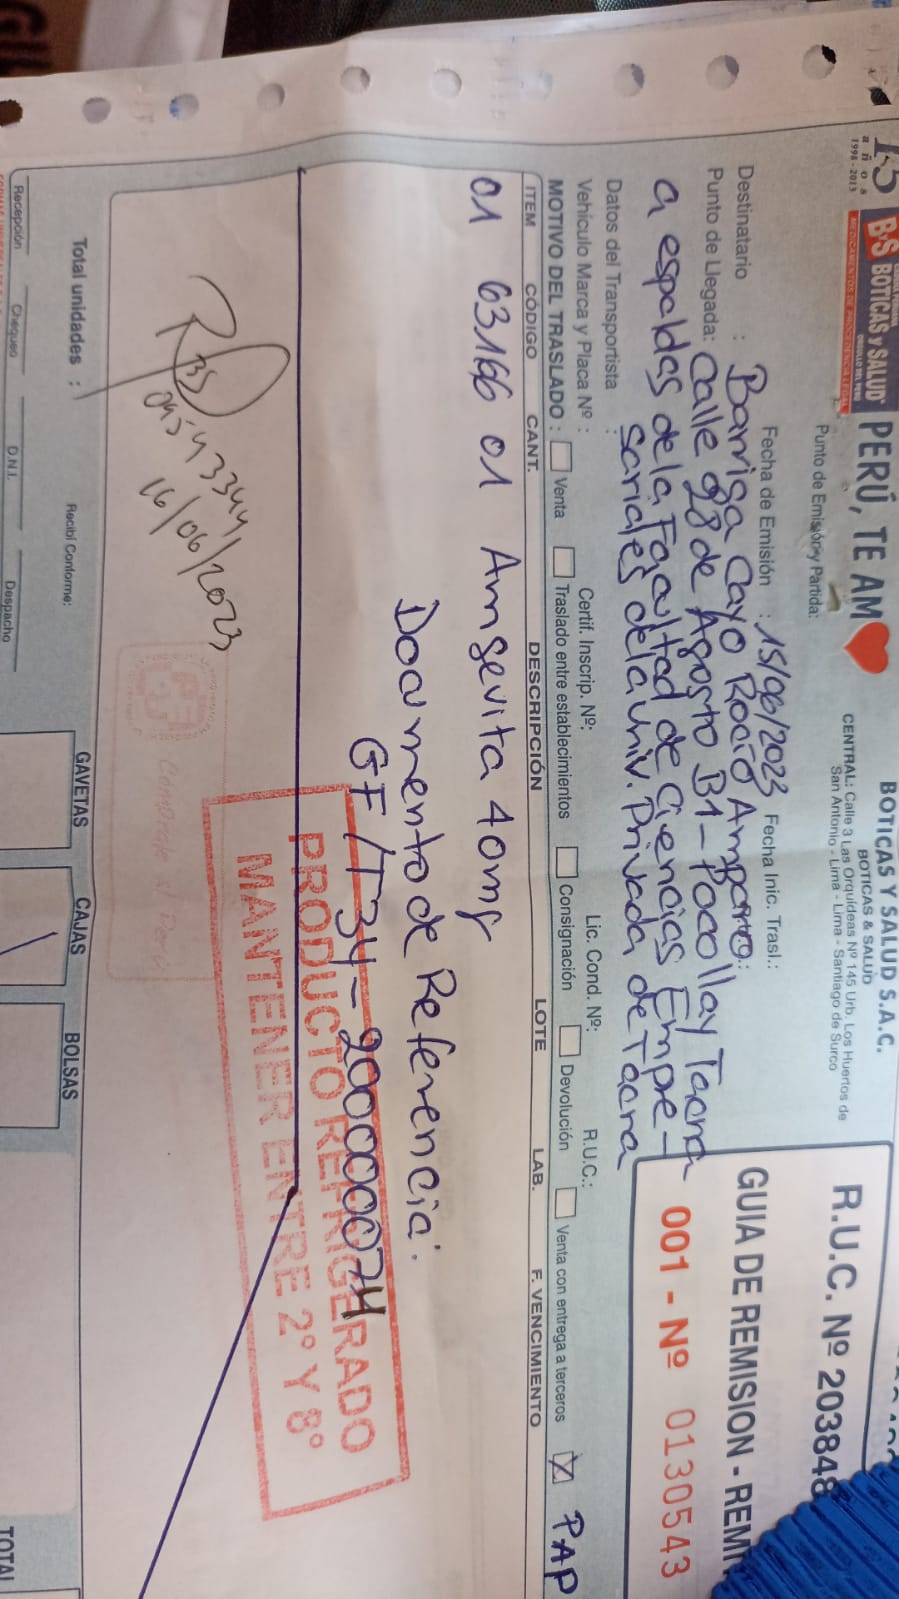 15 años
1998 - 2013
B&S BOTICAS y SALUD
ORGULLO DEL PERÚ
MEDICAMENTOS DE PROCEDENCIA LEGAL
PERÚ, TE AM
BOTICAS Y SALUD S.A.C.
BOTICAS & SALUD
CENTRAL: Calle 3 Las Orquideas Nº 145 Urb. Los Huertos de
San Antonio - Lima - Lima - Santiago de Surco
R.U.C. Nº 203848
GUIA DE REMISION - REMI
001 - Nº 0130543
Punto de Emisión y Partida:
Fecha de Emisión : 15/06/2023 Fecha Inic. Trasl.:
Destinatario : Barriga Cayo Rocío Amparo
Punto de Llegada: Calle 28 de Agosto B1 - Pocollay Tacna
a espaldas de la Facultad de Ciencias Empre-
sariales de la Univ. Privada de Tacna
Datos del Transportista :
Vehículo Marca y Placa Nº : Certif. Inscrip. Nº: Lic. Cond. Nº: R.U.C.:
MOTIVO DEL TRASLADO : Venta Traslado entre establecimientos Consignación Devolución Venta con entrega a terceros X PAP
ITEM CÓDIGO CANT. DESCRIPCIÓN LOTE LAB. F. VENCIMIENTO
01 63166 01 Amgevita 40mg
Documento de Referencia:
GF/T34-200000074
PRODUCTO REFRIGERADO
MANTENER ENTRE 2° Y 8°
16/06/2023
Total unidades :
Recibí Conforme:
GAVETAS CAJAS BOLSAS
Recepción Chequeo D.N.I. Despacho
TOTAL